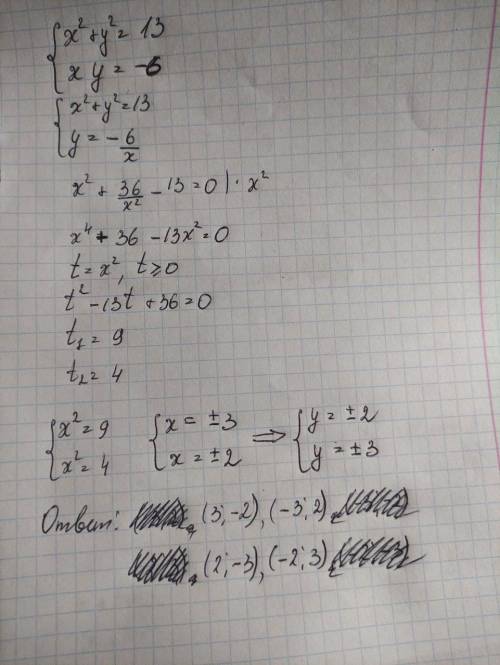 { x² + y² = 13
{ x y = -6
{ x² + y² = 13
{ y = - 6/x
x² + 36/x² - 13 = 0 | · x²
x⁴ + 36 - 13x² = 0
t = x², t ≥ 0
t² - 13t + 36 = 0
t₁ = 9
t₂ = 4
{ x² = 9 { x = ±3 ⇒ { y = ±2
{ x² = 4 { x = ±2 { y = ±3
Ответ: (3; -2), (-3; 2)
(2; -3), (-2; 3)